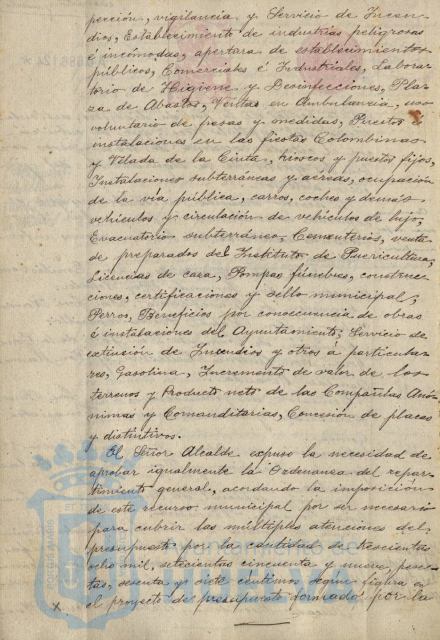 pección, vigilancia, y Servicio de Incen-
dios, Establecimiento de industrias peligrosas
é incómodas, apertura de establecimientos
públicos, Comerciales é Industriales, Labora-
torio de Higiene y Desinfecciones, Pla-
za de Abastos, Ventas en Ambulancia, uso
voluntario de pesas y medidas, Puestos é
instalaciones en las fiestas Colombinas
y Velada de la Cinta, kioscos y puestos fijos,
Instalaciones subterráneas y aéreas, ocupación
de la vía pública, carros, coches y demás
vehículos y circulación de vehículos de lujo,
Evacuatorio subterráneo, Cementerios, venta
de preparados del Instituto de Puericultura,
Licencias de caza, Pompas fúnebres, construc-
ciones, certificaciones y sello municipal,
Perros, Beneficios por consecuencia de obras
é instalaciones del Ayuntamiento, Servicio de
extinción de Incendios y otros á particula-
res, Gasolina, Incremento de valor de los
terrenos y Producto neto de las Compañías Anó-
nimas y Comanditarias, Concesión de placas
y distintivos.
El Señor Alcalde expuso la necesidad de
aprobar igualmente la Ordenanza del repar-
timiento general, acordando la imposición
de este recurso municipal por ser necesario
para cubrir las múltiples atenciones del
presupuesto por la cantidad de
ocho mil, setecientas cincuenta y nueve, pese-
tas, sesenta y siete céntimos según figura en
el proyecto de presupuesto formado por la